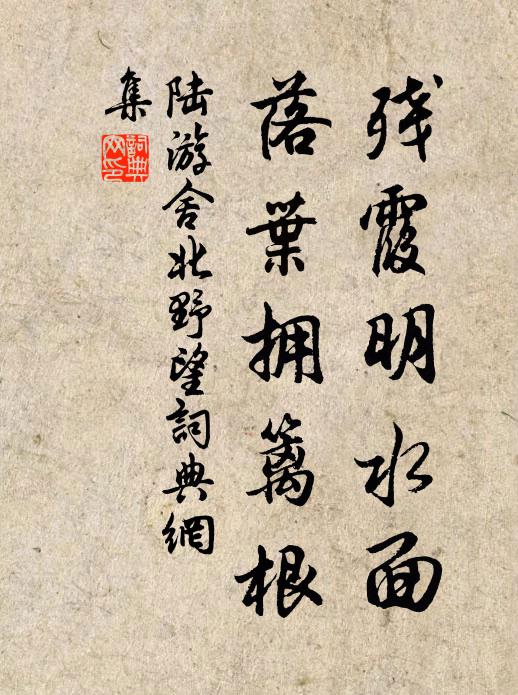 残霞明水面
落葉拥篱根
陆游舍北野望詞典網
集
詞典网印